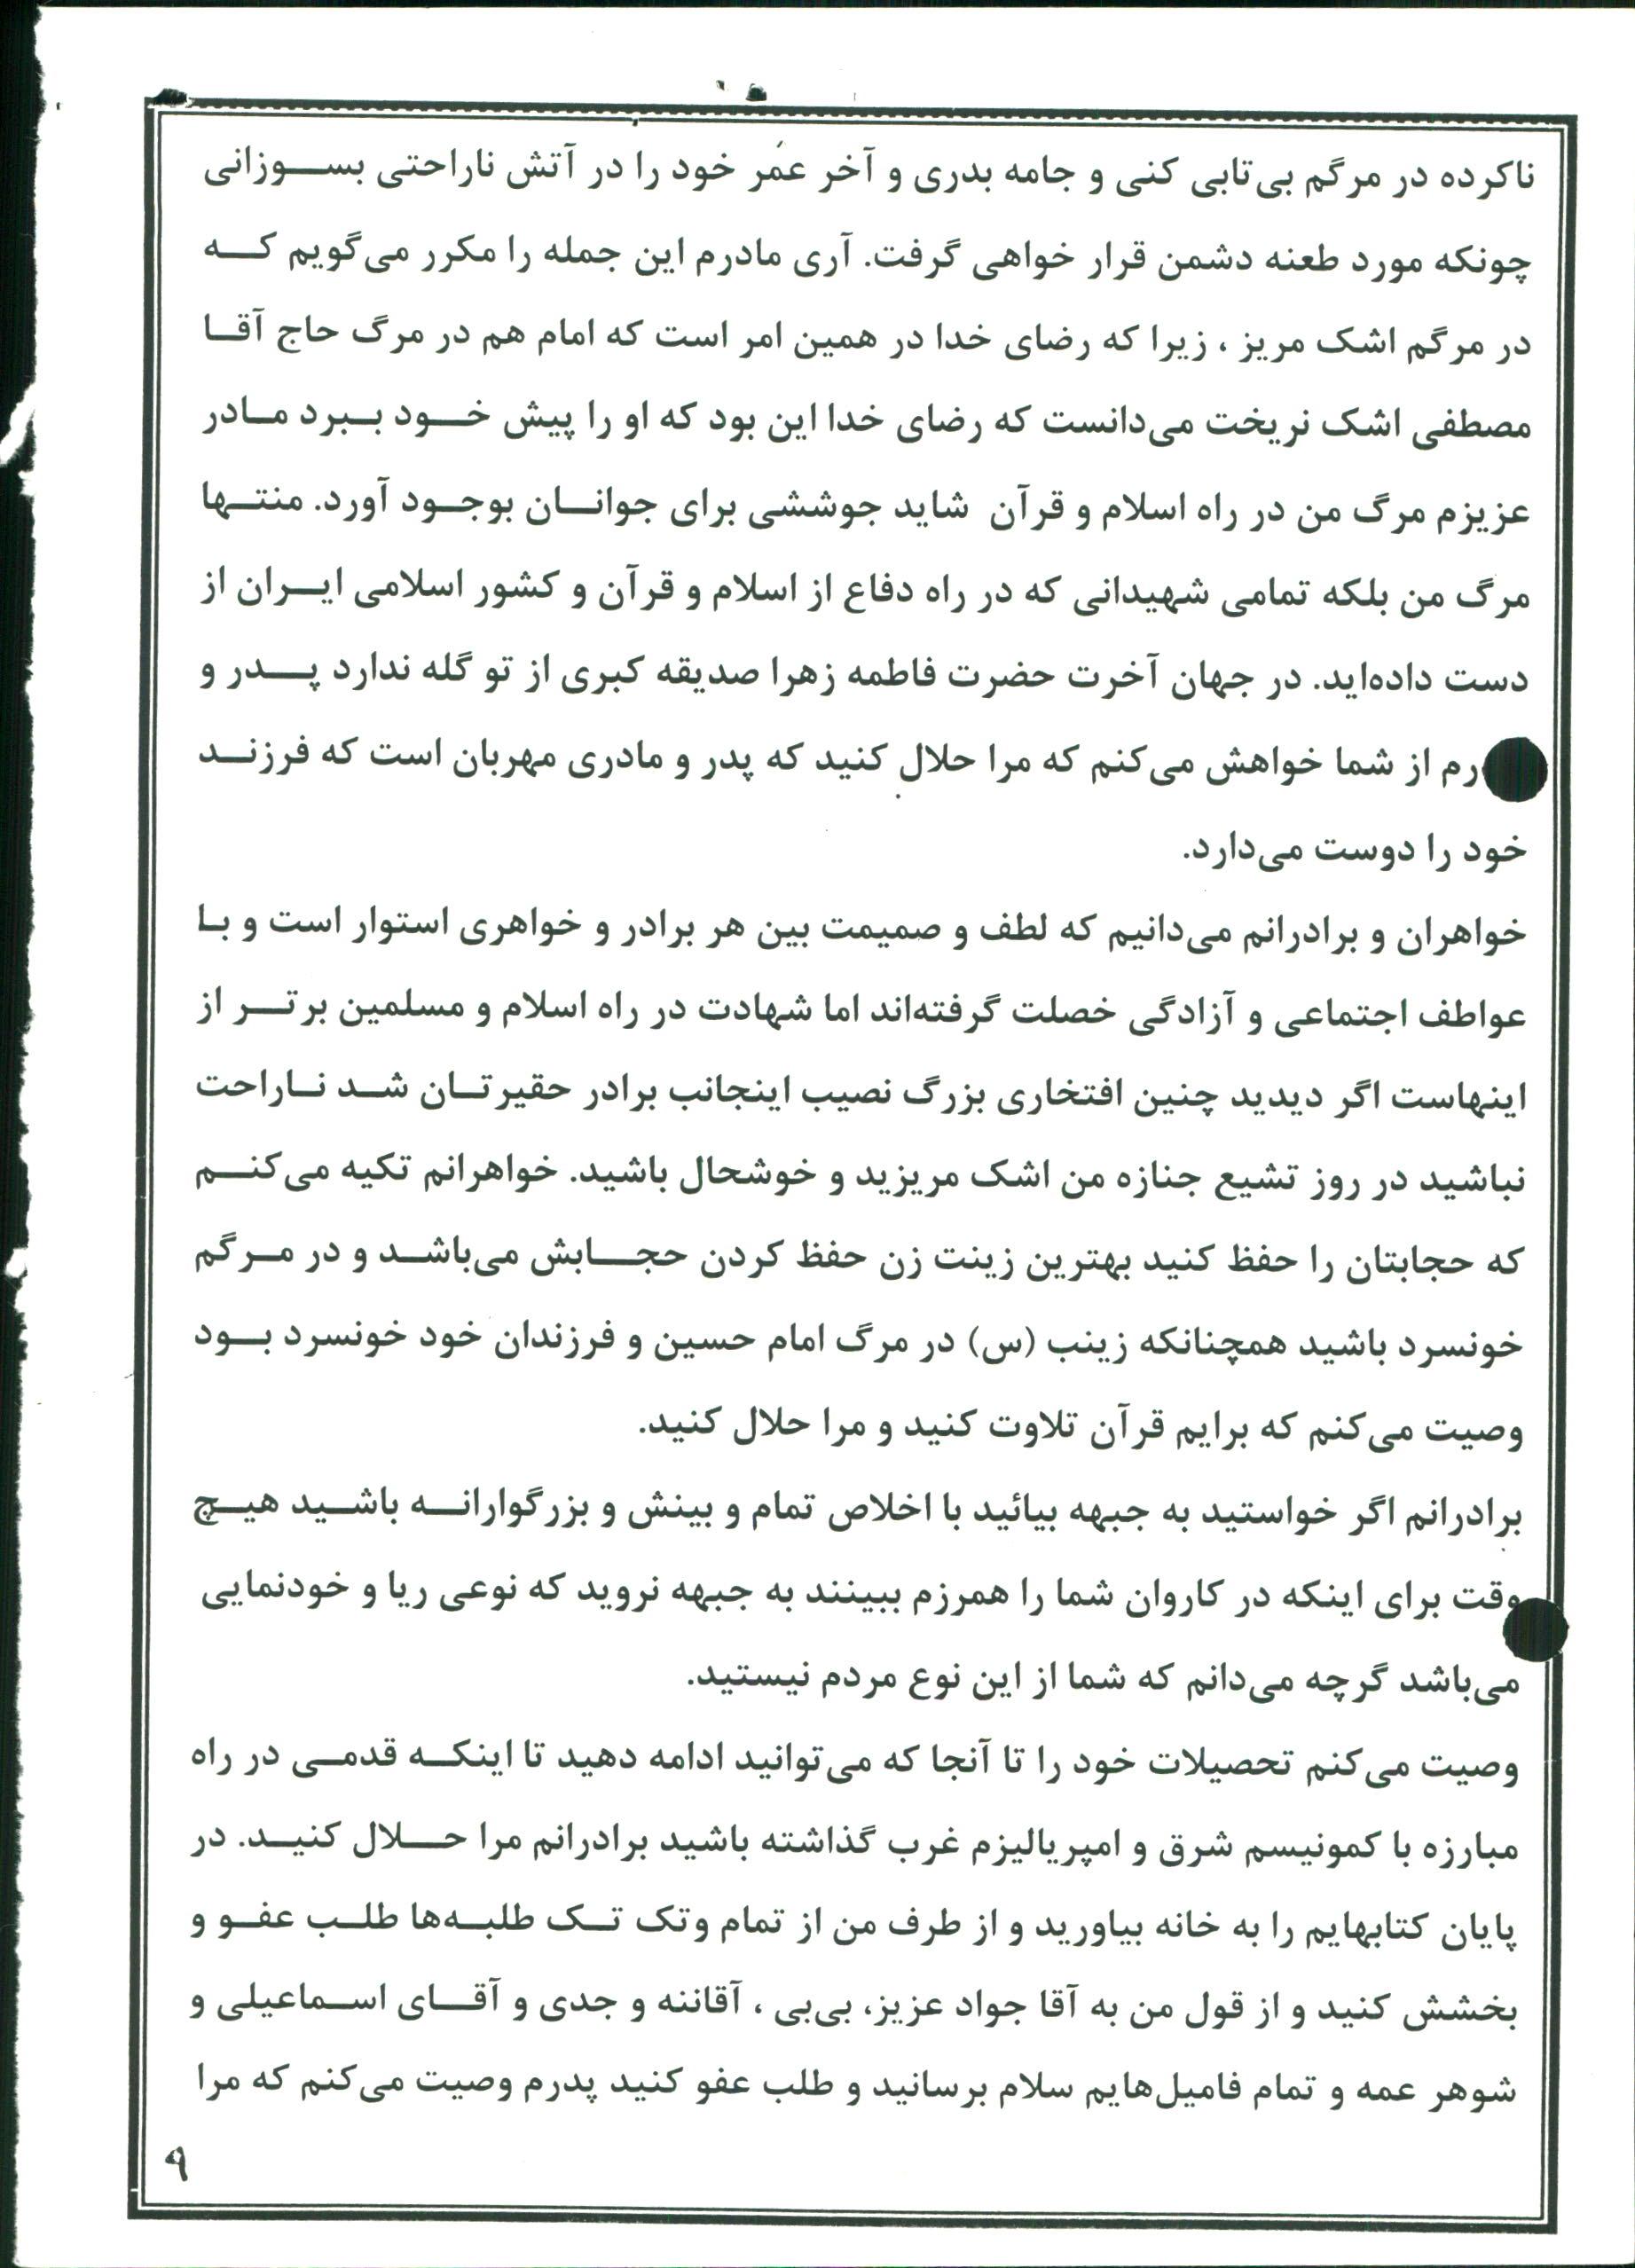 ناکرده در مرگم بی‌تابی کنی و جامه بدری و آخر عمُر خود را در آتش ناراحتی بسوزانی
چونکه مورد طعنه دشمن قرار خواهی گرفت. آری مادرم این جمله را مکرر می‌گویم که
در مرگم اشک مریز ، زیرا که رضای خدا در همین امر است که امام هم در مرگ حاج آقا
مصطفی اشک نریخت می‌دانست که رضای خدا این بود که او را پیش خود ببرد مادر
عزیزم مرگ من در راه اسلام و قرآن شاید جوششی برای جوانان بوجود آورد. منتها
مرگ من بلکه تمامی شهیدانی که در راه دفاع از اسلام و قرآن و کشور اسلامی ایران از
دست داده‌اید. در جهان آخرت حضرت فاطمه زهرا صدیقه کبری از تو گله ندارد پدر و
رم از شما خواهش می‌کنم که مرا حلال کنید که پدر و مادری مهربان است که فرزند
خود را دوست می‌دارد.
خواهران و برادرانم می‌دانیم که لطف و صمیمت بین هر برادر و خواهری استوار است و با
عواطف اجتماعی و آزادگی خصلت گرفته‌اند اما شهادت در راه اسلام و مسلمین برتر از
اینهاست اگر دیدید چنین افتخاری بزرگ نصیب اینجانب برادر حقیرتان شد ناراحت
نباشید در روز تشیع جنازه من اشک مریزید و خوشحال باشید. خواهرانم تکیه می‌کنم
که حجابتان را حفظ کنید بهترین زینت زن حفظ کردن حجابش می‌باشد و در مرگم
خونسرد باشید همچنانکه زینب (س) در مرگ امام حسین و فرزندان خود خونسرد بود
وصیت می‌کنم که برایم قرآن تلاوت کنید و مرا حلال کنید.
برادرانم اگر خواستید به جبهه بیائید با اخلاص تمام و بینش و بزرگوارانه باشید هیچ
وقت برای اینکه در کاروان شما را همرزم ببینند به جبهه نروید که نوعی ریا و خودنمایی
می‌باشد گرچه می‌دانم که شما از این نوع مردم نیستید.
وصیت می‌کنم تحصیلات خود را تا آنجا که می‌توانید ادامه دهید تا اینکه قدمی در راه
مبارزه با کمونیسم شرق و امپریالیزم غرب گذاشته باشید برادرانم مرا حلال کنید. در
پایان کتابهایم را به خانه بیاورید و از طرف من از تمام وتک تک طلبه‌ها طلب عفو و
بخشش کنید و از قول من به آقا جواد عزیز، بی‌بی ، آقاننه و جدی و آقای اسماعیلی و
شوهر عمه و تمام فامیل‌هایم سلام برسانید و طلب عفو کنید پدرم وصیت می‌کنم که مرا
۹